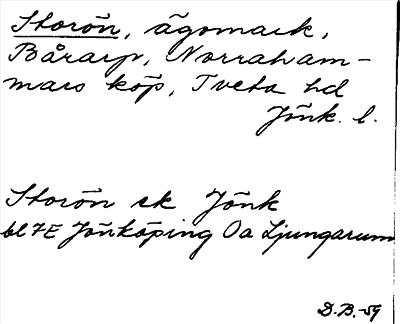 Storön, ägomark,
Bårarp, Norraham-
mars köp, Tveta hd
Jönk. l.
Storön ek Jönk
bl 7E Jönköping Oa Ljungarum
D.B.-59